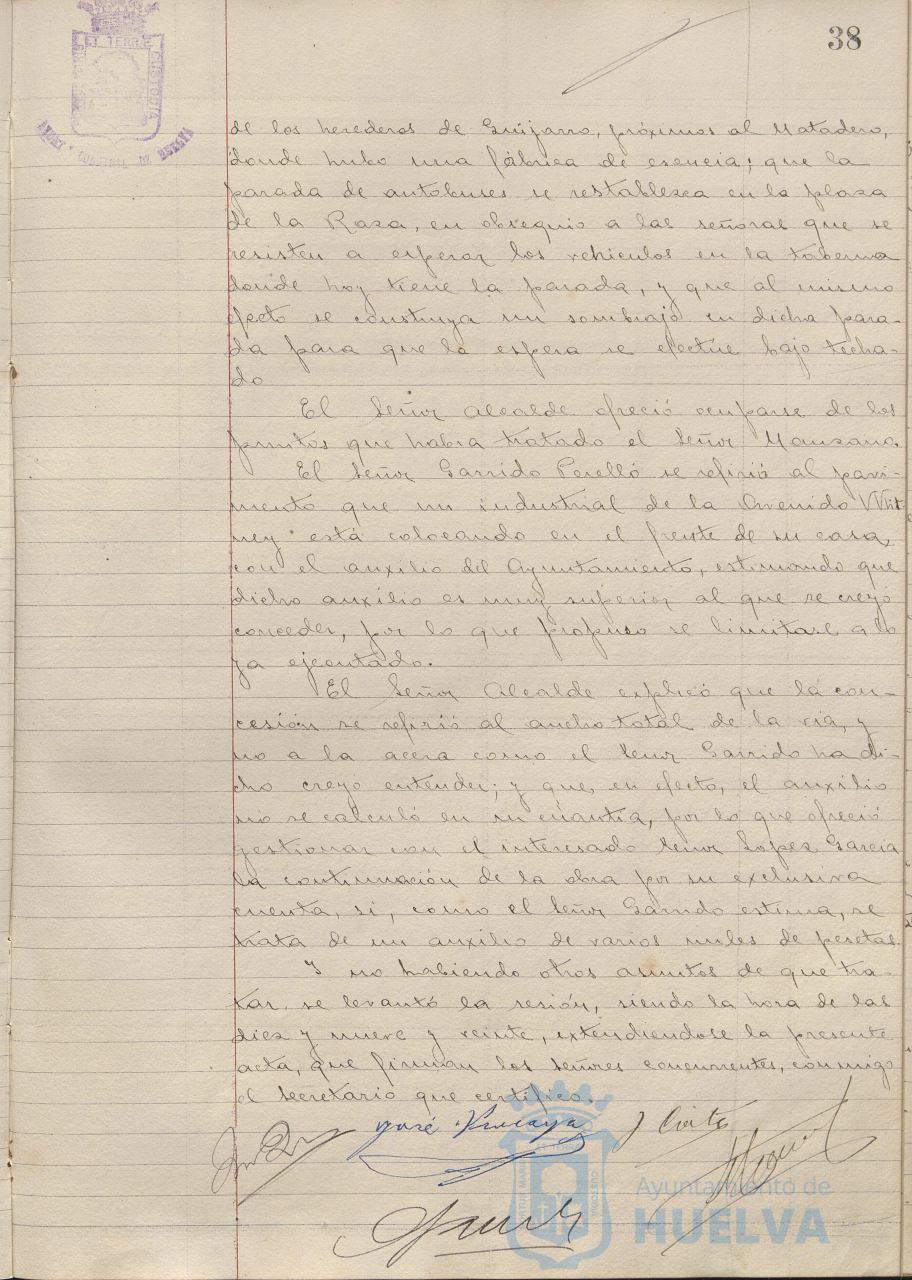 38
ET TERRÆ
CUSTODIA
de los herederos de Guijarro, próximos al Matadero,
donde hubo una fábrica de esencia; que la
parada de autobuses se restablezca en la plaza
de la Raza, en obsequio a las señoras que se
resisten a esperar los vehiculos en la taberna
donde hoy tiene la parada, y que al mismo
efecto se construya un sombrajo en dicha para-
da para que la espera se efectue bajo techa-
do
El Señor Alcalde ofreció ocuparse de los
puntos que habia tratado el Señor Manzano
El Señor Garrido Perelló se refirió al pavi-
mento que un industrial de la Avenida Whit
ney está colocando en el frente de su casa,
con el auxilio del Ayuntamiento, estimando que
dicho auxilio es muy superior al que se creyó
conceder, por lo que propuso se limitase a lo
ya ejecutado.
El Señor Alcalde explicó que la con-
cesión se refirió al ancho total de la via, y
no a la acera como el Señor Garrido ha di-
cho creyo entender; y que, en efecto, el auxilio
no se calculó en su cuantia, por lo que ofreció
gestionar con el interesado Señor Lopez Garcia
la continuación de la obra por su exclusiva
cuenta, si, como el Señor Garrido estima, se
trata de un auxilio de varios miles de pesetas.
Y no habiendo otros asuntos de que tra-
tar, se levantó la sesión, siendo la hora de las
diez y nueve y veinte, extendiendose la presente
acta, que firman los señores concurrentes, conmigo
el Secretario que certifico.
José
Ayuntamiento de
HUELVA